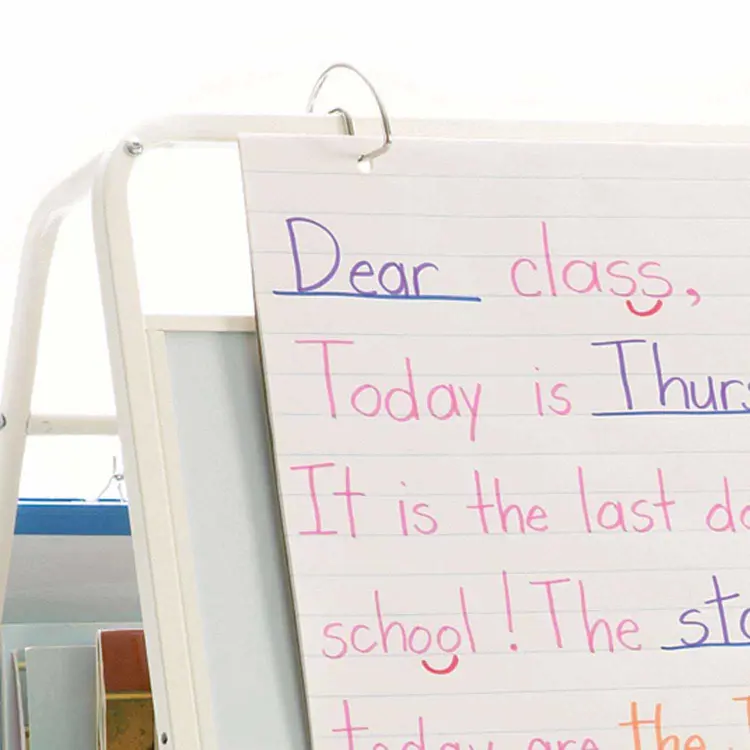 Dear class,
Today is Thurs
It is the last da
school! The sto
today are the